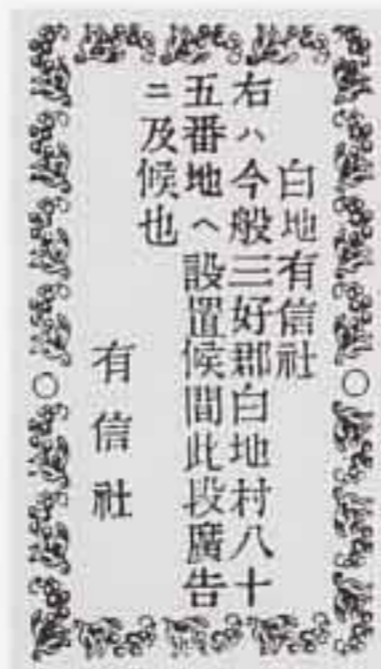 白地有信社
右ハ今般三好郡白地村八十
五番地へ設置候間此段廣告
ニ及候也
有信社